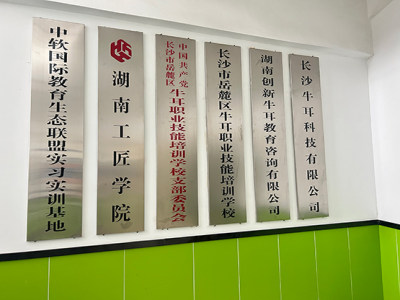 中软国际教育生态联盟实习实训基地
湖南工匠学院
中国共产党
长沙市岳麓区
牛耳职业技能培训学校支部委员会
长沙市岳麓区牛耳职业技能培训学校
湖南创新牛耳教育咨询有限公司
长沙牛耳科技有限公司